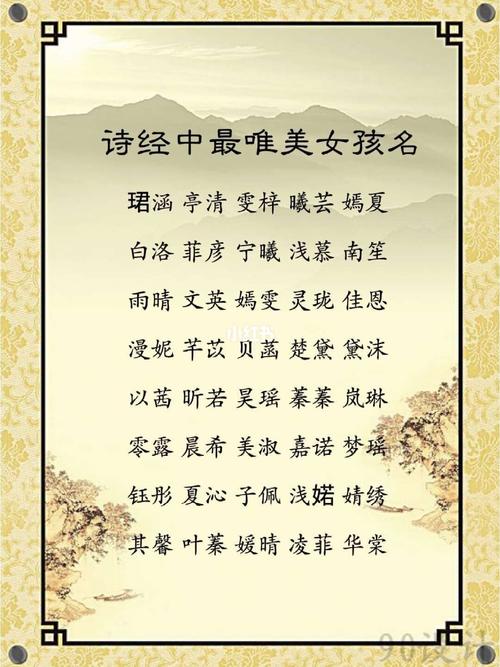 诗经中最唯美女孩名
珺涵 亭清 雯梓 曦芸 嫣夏
白洛 菲彦 宁曦 浅慕 南笙
雨晴 文英 嫣雯 灵珑 佳恩
小红书
漫妮 芊苡 贝菡 楚黛 黛沫
以茜 昕若 昊瑶 蓁蓁 岚琳
零露 晨希 美淑 嘉诺 梦瑶
钰彤 夏沁 子佩 浅婼 婧绣
其馨 叶蓁 媛晴 凌菲 华棠
90设计